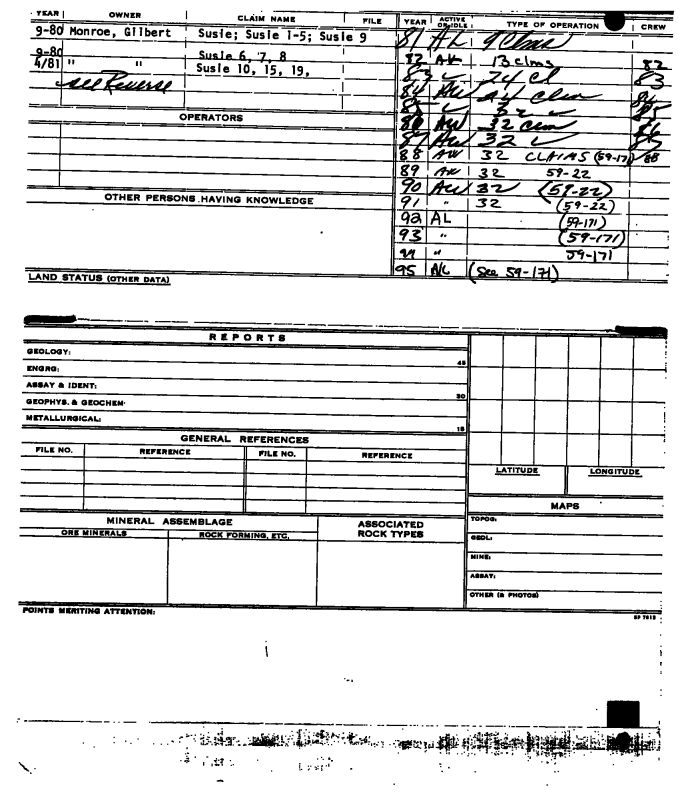 YEAR OWNER CLAIM NAME FILE YEAR ACTIVE OR IDLE TYPE OF OPERATION CREW
9-80 Monroe, Gilbert Susie; Susie 1-5; Susie 9 81 AL 9 Clms
9-80 Susie 6, 7, 8 82 AW 13 clms 82
4/81 " " Susie 10, 15, 19, 83 ✓ 24 cl 83
see Reverse 84 AW 24 84
85 ✓ 32 ✓ 85
OPERATORS 86 AW 32 86
87 AW 32 ✓
88 AW 32 CLAIMS (59-171) 88
89 AW 32 59-22
90 AW 32 (59-22)
OTHER PERSONS HAVING KNOWLEDGE 91 " 32 (59-22)
92 AL (59-171)
93 " (59-171)
" 59-171
LAND STATUS (OTHER DATA) 95 A/L (See 59-171)
REPORTS
GEOLOGY:
45
ENGRG:
ASSAY & IDENT:
30
GEOPHYS. & GEOCHEM.
METALLURGICAL:
15
GENERAL REFERENCES
FILE NO. REFERENCE FILE NO. REFERENCE
LATITUDE LONGITUDE
MAPS
MINERAL ASSEMBLAGE ASSOCIATED ROCK TYPES
ORE MINERALS ROCK FORMING, ETC.
TOPOG:
GEOL:
MINE:
ASSAY:
OTHER (& PHOTOS)
POINTS MERITING ATTENTION: